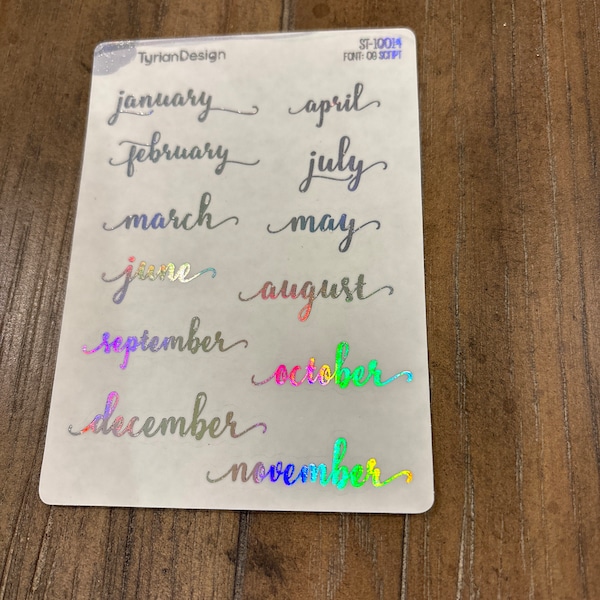 TyrianDesign
ST-10014
FONT: 08 SCRIPT
january
april
february
july
march
may
june
august
september
october
december
november